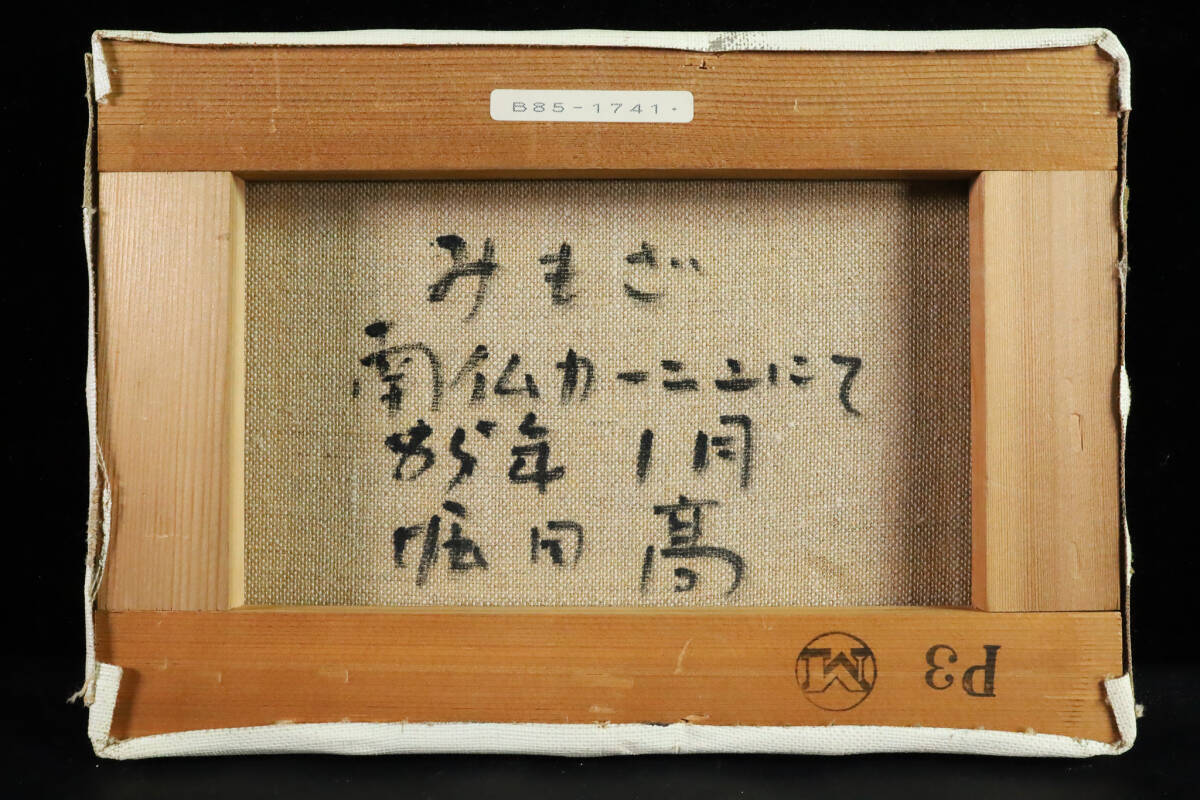 B85-1741.
みもざ
南仏カーニュにて
85年 1月
高
P3
M